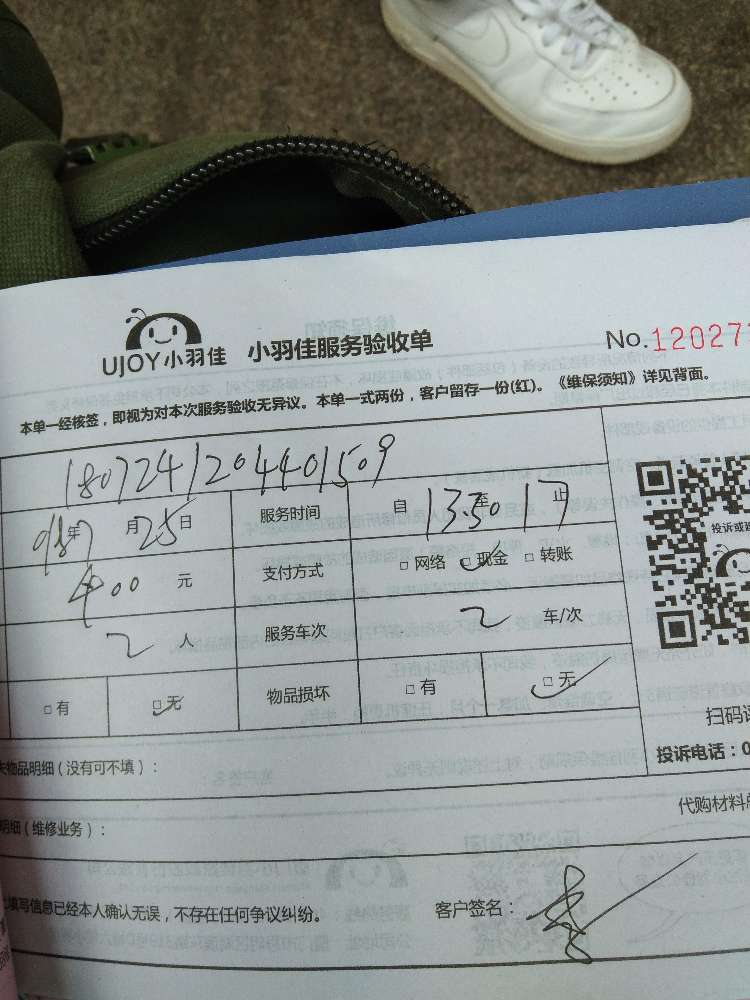 UJOY小羽佳 小羽佳服务验收单 No.120273
本单一经核签，即视为对本次服务验收无异议。本单一式两份，客户留存一份(红)。《维保须知》详见背面。
180724120440 1509
年 月25日 服务时间 自 13:30 至 17 止
400 元 支付方式 □网络 □现金 □转账
2 人 服务车次 2 车/次
□有 □无 物品损坏 □有 □无
投诉或
扫码
失物品明细（没有可不填）： 投诉电话：0
代购材料总
明细（维修业务）：
上填写信息已经本人确认无误，不存在任何争议纠纷。 客户签名：